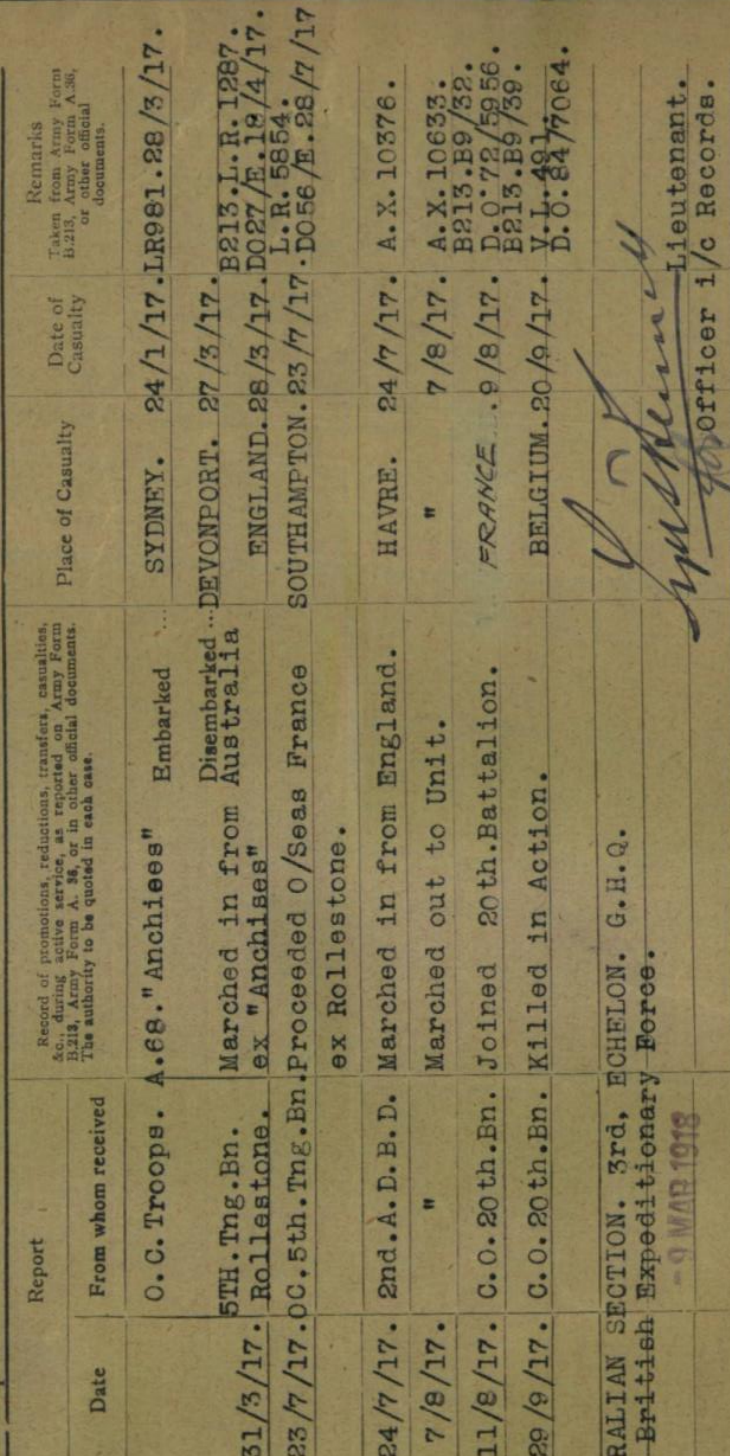 Report
Record of promotions, reductions, transfers, casualties,
&c., during active service, as reported on Army Form
B.213, Army Form A. 36, or in other official documents.
The authority to be quoted in each case.
Place of Casualty
Date of
Casualty
Remarks
Taken from Army Form
B.213, Army Form A.36,
or other official
documents.
Date
From whom received
O.C.Troops. A.68."Anchises" Embarked ... SYDNEY. 24/1/17.LR981.28/3/17.
Disembarked ...DEVONPORT. 27/3/17.
31/3/17. 5TH.Tng.Bn. Marched in from Australia ENGLAND.28/3/17. B213.L.R.1287.
Rollestone. ex "Anchises" D027/E.18/4/17.
23/7/17.OC.5th.Tng.Bn.Proceeded O/Seas France SOUTHAMPTON.23/7/17. L.R.5854.
D056/E.28/7/17
ex Rollestone.
24/7/17. 2nd.A.D.B.D. Marched in from England. HAVRE. 24/7/17. A.X.10376.
7/8/17. " Marched out to Unit. " 7/8/17. A.X.10633.
B213.B9/32.
11/8/17. C.O.20th.Bn. Joined 20th.Battalion. FRANCE...9/8/17. D.O.72/5956.
B213.B9/39.
29/9/17. C.O.20th.Bn. Killed in Action. BELGIUM.20/9/17. V.L.491.
D.O.84/7064.
RALIAN SECTION. 3rd, ECHELON. G.H.Q.
British Expeditionary Force.
- 9 MAR 1918
Lieutenant.
for Officer i/c Records.